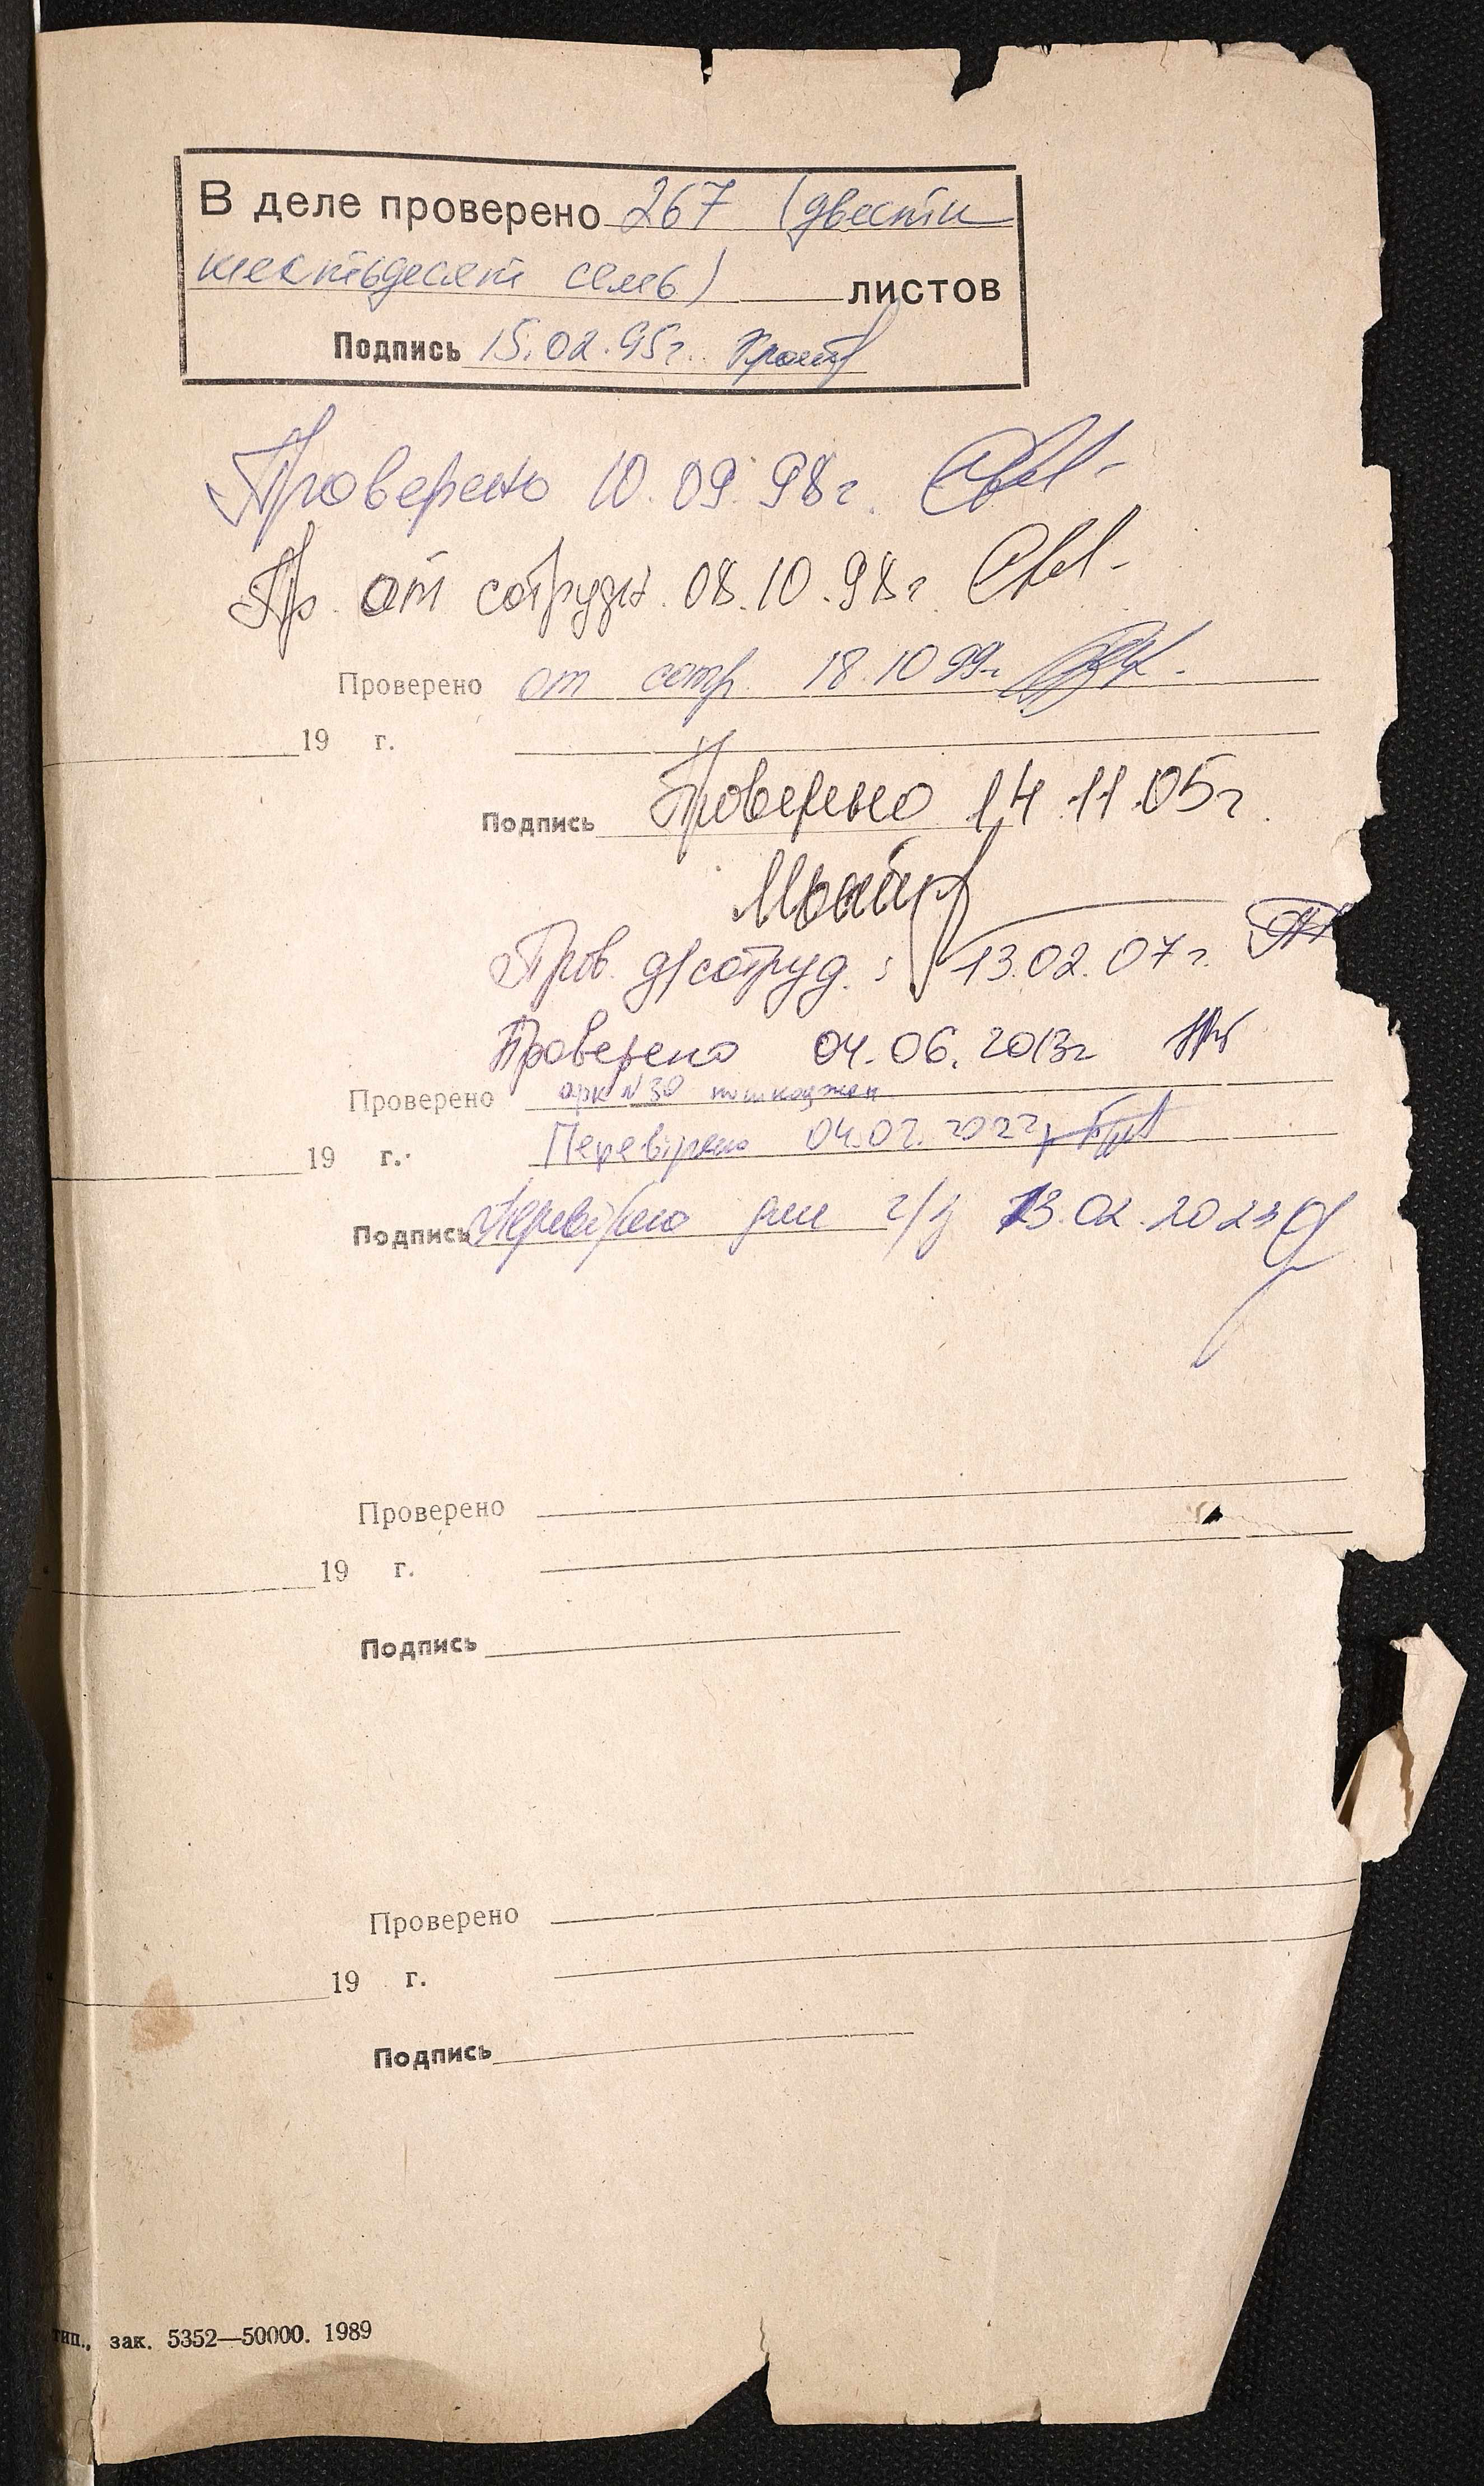 В деле проверено 267 (двести
шестьдесят семь) листов
Подпись 15.02.95г.
Проверено 10.09.98г.
Пр. от сотрудн. 08.10.98г
Проверено от сотр. 18.10 99г.
19 г.
Подпись Проверено 14.11.05г.
Пров. д/сотруд. : 13.02.07г.
Проверено 04.06.2013г
Проверено арк №30 пошкоджен
19 г. Перевірено 04.02.2022р
Подпись Перевірено для г/з 13.02.2023
Проверено
19 г.
Подпись
Проверено
19 г.
Подпись
тип., зак. 5352—50000. 1989